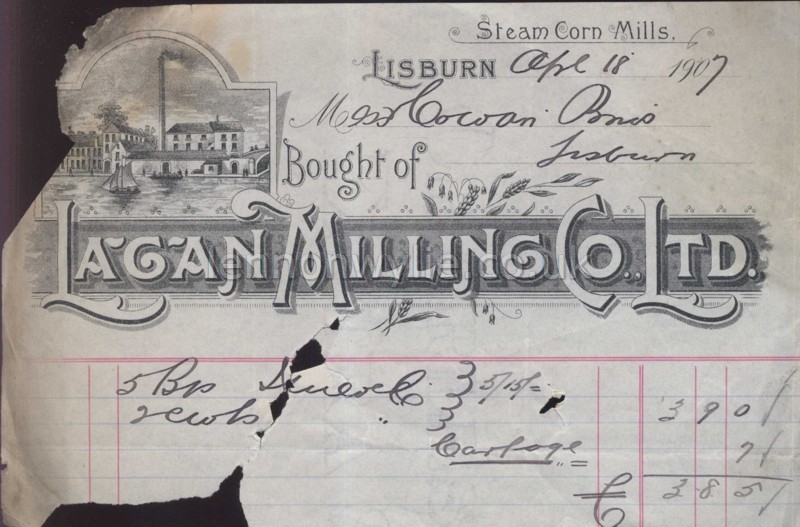 Steam Corn Mills.
LISBURN Apl 18 1907
Messrs Cowan Bros
Lisburn
Bought of
LAGAN MILLING CO., LTD.
5 Bgs } 5/15/=
2 cwts " }
Cartage =
3 9 0
7
£ 3 8 5